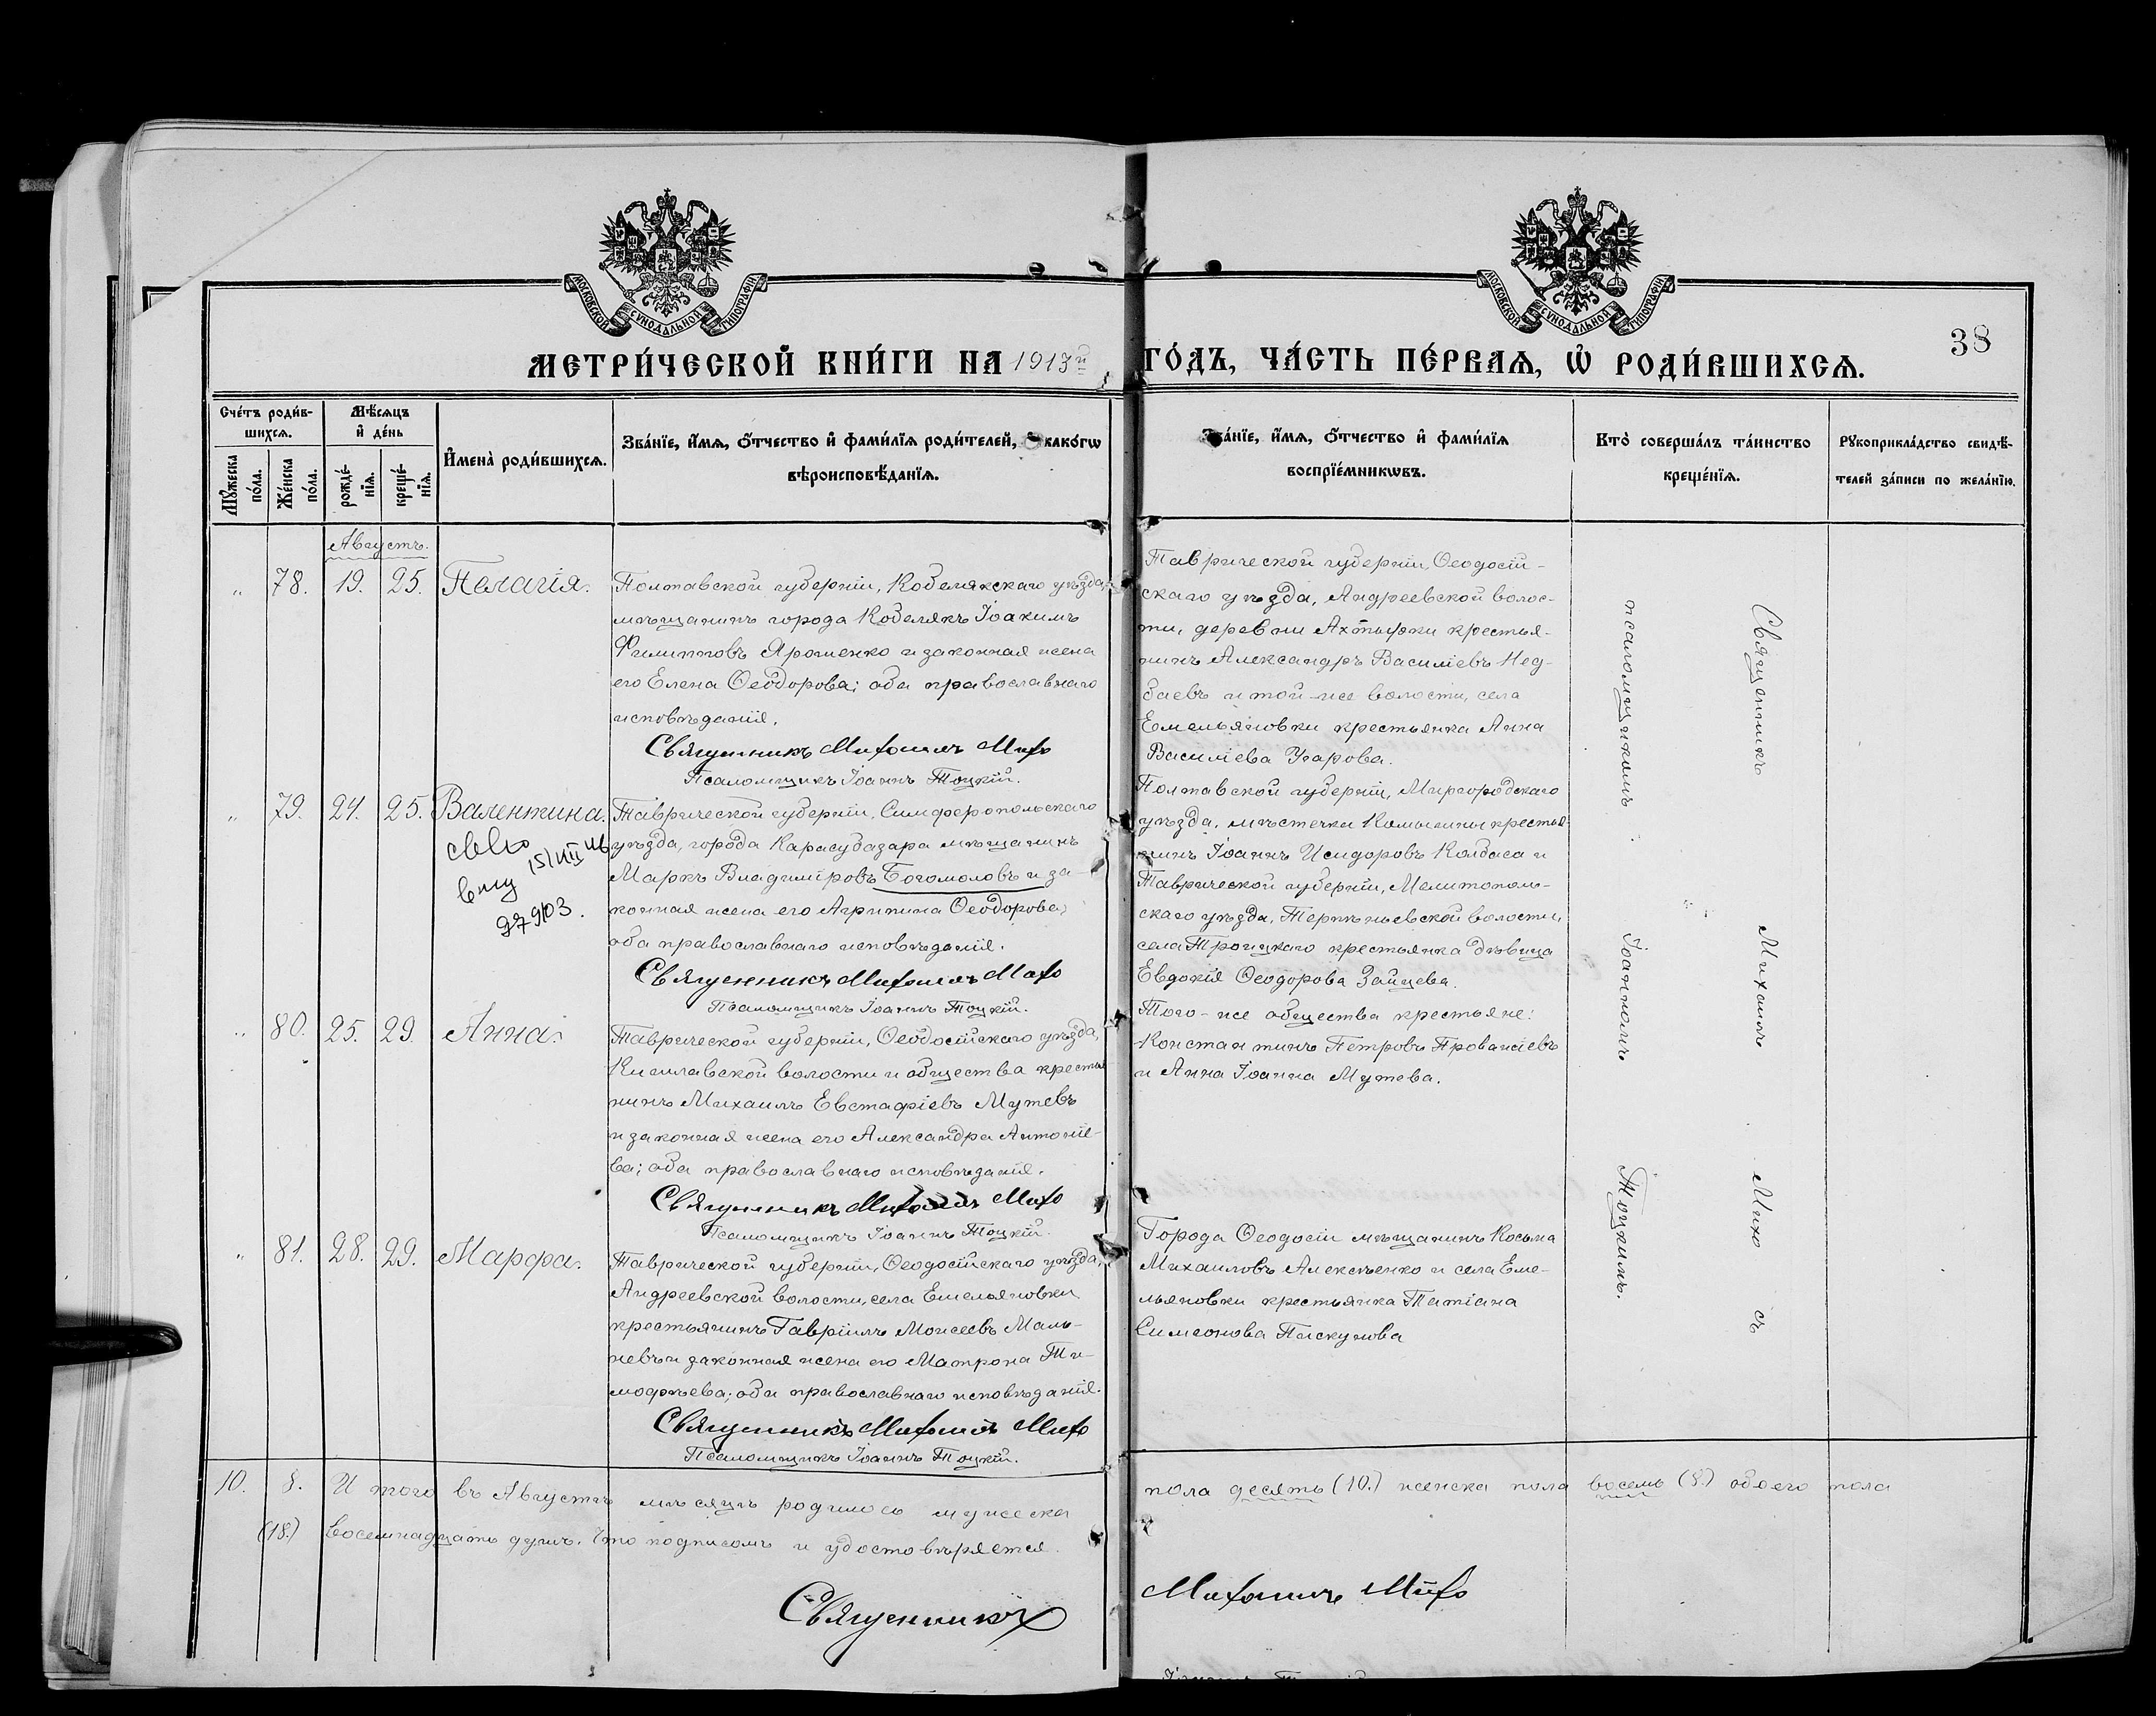 МОСКОВСКОЙ СУНОДАЛЬНОЙ ТИПОГРАФІИ
МОСКОВСКОЙ СУНОДАЛЬНОЙ ТИПОГРАФІИ
38
МЕТРИ́ЧЕСКОЙ КНИ́ГИ НА 1913й ГО́ДЪ, ЧА́СТЬ ПЕ́РВАѦ, Ѡ҆ РОДИ́ВШИХСѦ.
Сче́тъ роди́в-
шихсѧ.
Мꙋ́жеска по́ла.
Же́нска по́ла.
Мѣ́сѧцъ
и҆ де́нь
рожде́-
нїѧ.
креще́-
нїѧ.
И҆мена̀ роди́вшихсѧ.
Зва́нїе, и҆́мѧ, ѻ҆́тчество и҆ фами́лїѧ роди́телей, и҆ како́гѡ
вѣроисповѣ́данїѧ.
Зва́нїе, и҆́мѧ, ѻ҆́тчество и҆ фами́лїѧ
воспрїе́мникѡвъ.
Кто̀ соверша́лъ та́инство
креще́нїѧ.
Рꙋкоприкла́дство свидѣ́-
телей за́писи по жела́нїю.
Августъ.
„ 78. 19. 25. Пелагія.
Полтавской губерніи, Кобелякскаго уѣзда,
мѣщанинъ города Кобелякъ Іоакимъ
Филипповъ Ярошенко и законная жена
его Елена Ѳеодорова; оба православнаго
исповѣданія.
Священникъ Михаилъ Михо
Псаломщикъ Іоаннъ Тоцкій.
Таврической губерніи, Ѳеодосій-
скаго уѣзда, Андреевской волос-
ти, деревни Ахтырки крестья-
нинъ Александръ Василіевъ Нед-
баевъ и той-же волости, села
Емельяновки крестьянка Анна
Василіева Угарова.
„ 79. 24. 25. Валентина.
15/VIII
279103.
Таврической губерніи, Симферопольскаго
уѣзда, города Карасубазара мѣщанинъ
Маркъ Владиміровъ Богомоловъ и за-
конная жена его Агрипина Ѳеодорова;
оба православнаго исповѣданія.
Священникъ Михаилъ Михо
Псаломщикъ Іоаннъ Тоцкій.
Полтавской губерніи, Миргородскаго
уѣзда, мѣстечки Комышны крестья-
нинъ Іоаннъ Исидоровъ Колбаса и
Таврической губерніи, Мелитополь-
скаго уѣзда, Терпѣньевской волости,
села Троицкаго крестьянка дѣвица
Евдокія Ѳеодорова Зайцева.
„ 80. 25. 29. Анна.
Таврической губерніи, Ѳеодосійскаго уѣзда,
Кишлавской волости и общества крестья
нинъ Михаилъ Евстафіевъ Мутевъ
и законная жена его Александра Антоніе-
ва; оба православнаго исповѣданія.
Священникъ Михаилъ Михо
Псаломщикъ Іоаннъ Тоцкій.
Того-же общества крестьяне:
Константинъ Петровъ Арванаѳіевъ
и Анна Іоанна Мутева.
„ 81. 28. 29. Марфа.
Таврической губерніи, Ѳеодосійскаго уѣзда,
Андреевской волости, села Емельяновки
крестьянинъ Гавріилъ Моисеевъ Маль-
невъ и законная жена его Матрона Ти-
моѳѣева; оба православнаго исповѣданія.
Священникъ Михаилъ Михо
Псаломщикъ Іоаннъ Тоцкій.
Города Ѳеодосіи мѣщанинъ Косьма
Михаиловъ Алексѣенко и села Еме-
льяновки крестьянка Татіана
Симеонова Пискунова
Священникъ Михаилъ Михо съ
псаломщикомъ Іоанномъ Тоцкимъ.
10. 8. И того въ Августѣ мѣсяцѣ родилось мужеска пола десять (10.) женска пола восемь (8.) обоего пола
(18.) восемнадцать душъ. Что подписомъ и удостовѣряется.
Священникъ Михаилъ Михо